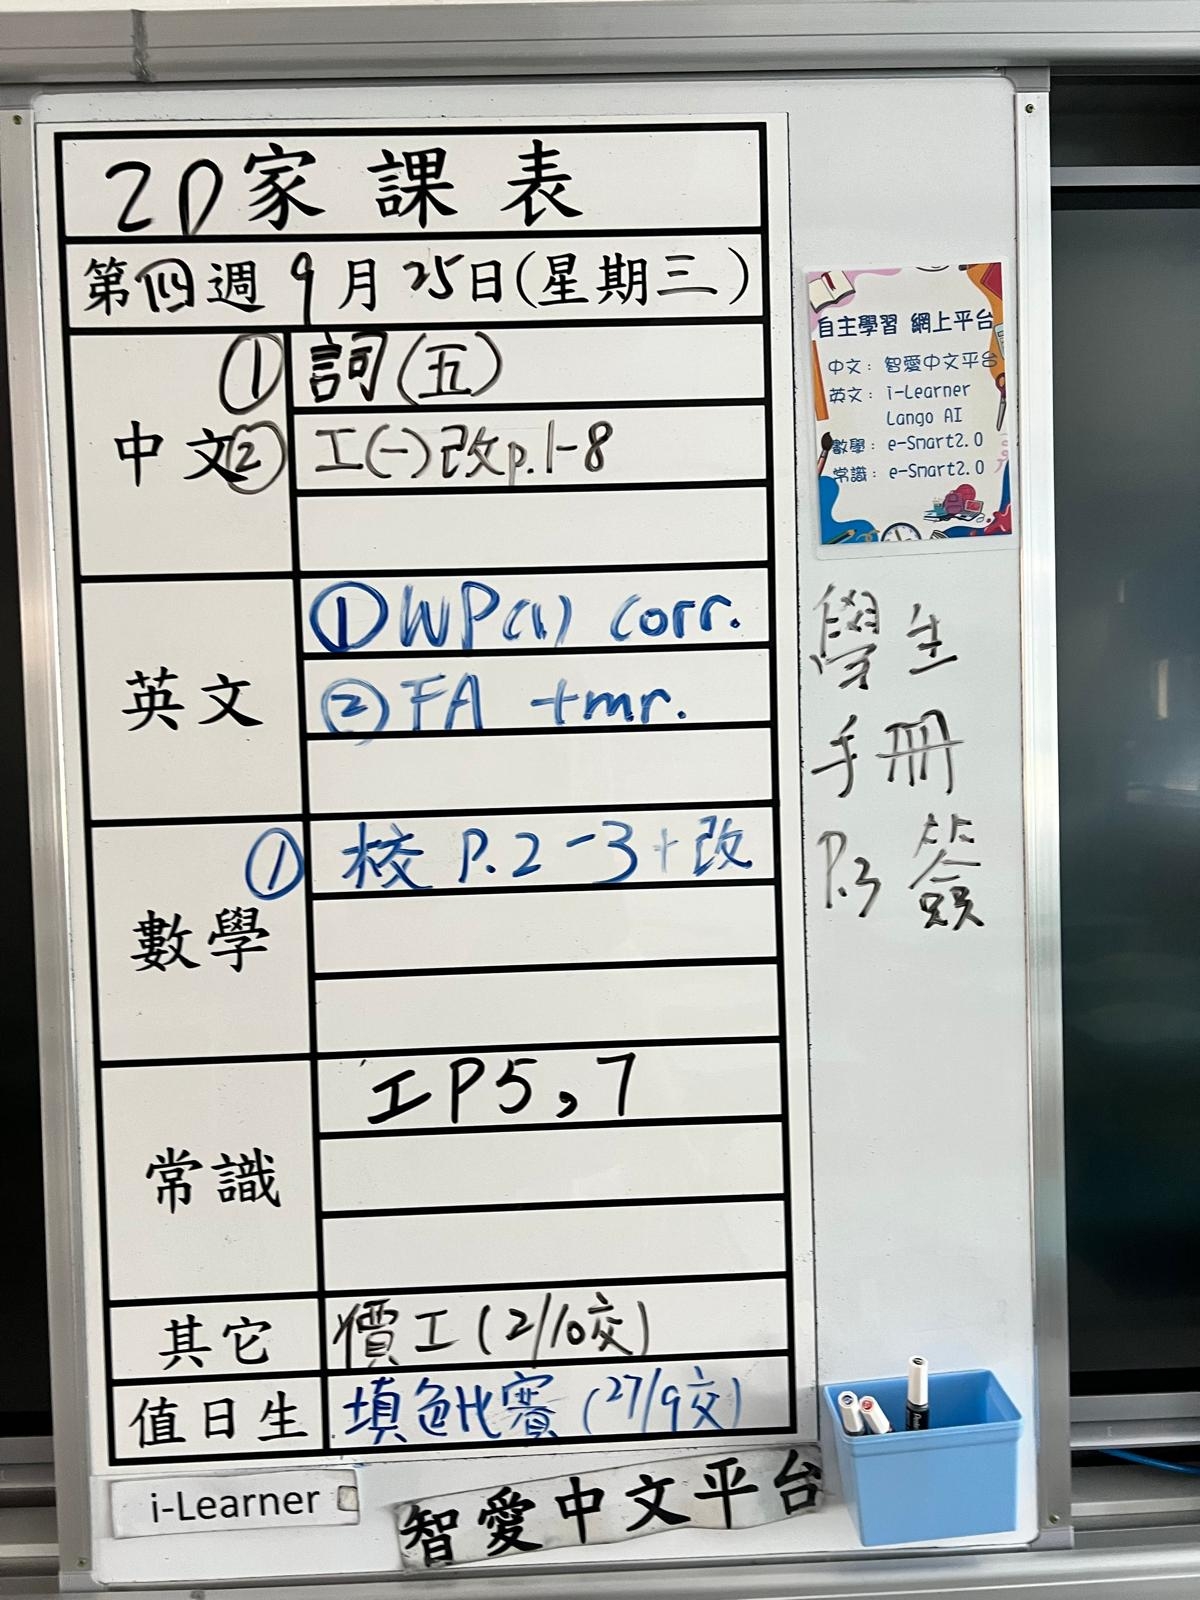 2D家課表
第四週9月25日(星期三)
中文
① 詞(五)
② 工(一)改p.1-8
英文
① WP(1) corr.
② FA tmr.
數學
① 校 P.2-3+改
常識
工P5,7
其它
價工(2/10交)
值日生
填色比賽(27/9交)
i-Learner
智愛中文平台
自主學習 網上平台
中文：智愛中文平台
英文：i-Learner
Lango AI
數學：e-Smart2.0
常識：e-Smart2.0
學生
手冊
P.3 簽